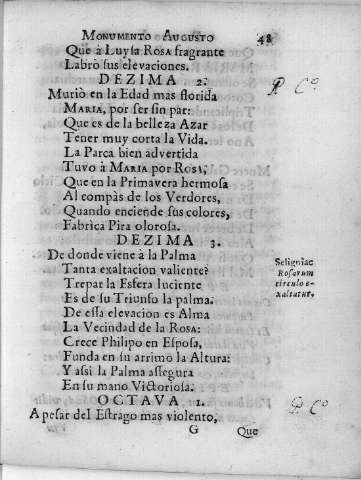 MONUMENTO AUGUSTO 48
Que à Luyſa ROSA fragrante
Labrò ſus elevaciones.
DEZIMA 2.
Muriò en la Edad mas florida
MARIA, por ſer ſin par:
Que es de la belleza Azar
Tener muy corta la Vida.
La Parca bien advertida
Tuvo à MARIA por ROSA,
Que en la Primavera hermoſa
Al compàs de los Verdores,
Quando enciende ſus colores,
Fabrica Pira oloroſa.
DEZIMA 3.
De donde viene à la Palma
Tanta exaltacion valiente?
Trepar la Esfera luciente
Es de ſu Triunfo la palma.
De eſſa elevacion es Alma
La Vecindad de la ROSA:
Crece Philipo en Eſpoſa,
Funda en ſu arrimo la Altura:
Y aſsi la Palma aſſegura
En ſu mano Victorioſa.
OCTAVA 1.
A peſar del Eſtrago mas violento,
G Que
Roſarum
circulo e-
xaltatur.